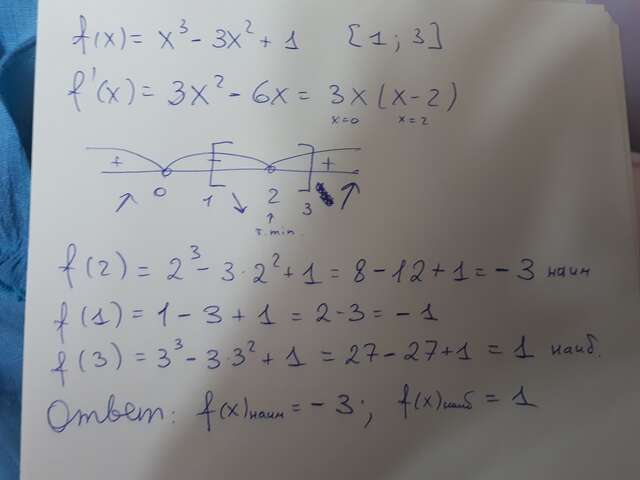 f(x) = x³ - 3x² + 1 [1; 3]
f'(x) = 3x² - 6x = 3x (x-2)
x=0 x=2
+ - +
0 1 2 3
т. min
f(2) = 2³ - 3·2² + 1 = 8 - 12 + 1 = -3 наим
f(1) = 1 - 3 + 1 = 2-3 = -1
f(3) = 3³ - 3·3² + 1 = 27 - 27 + 1 = 1 наиб.
Ответ: f(x)наим = -3; f(x)наиб = 1